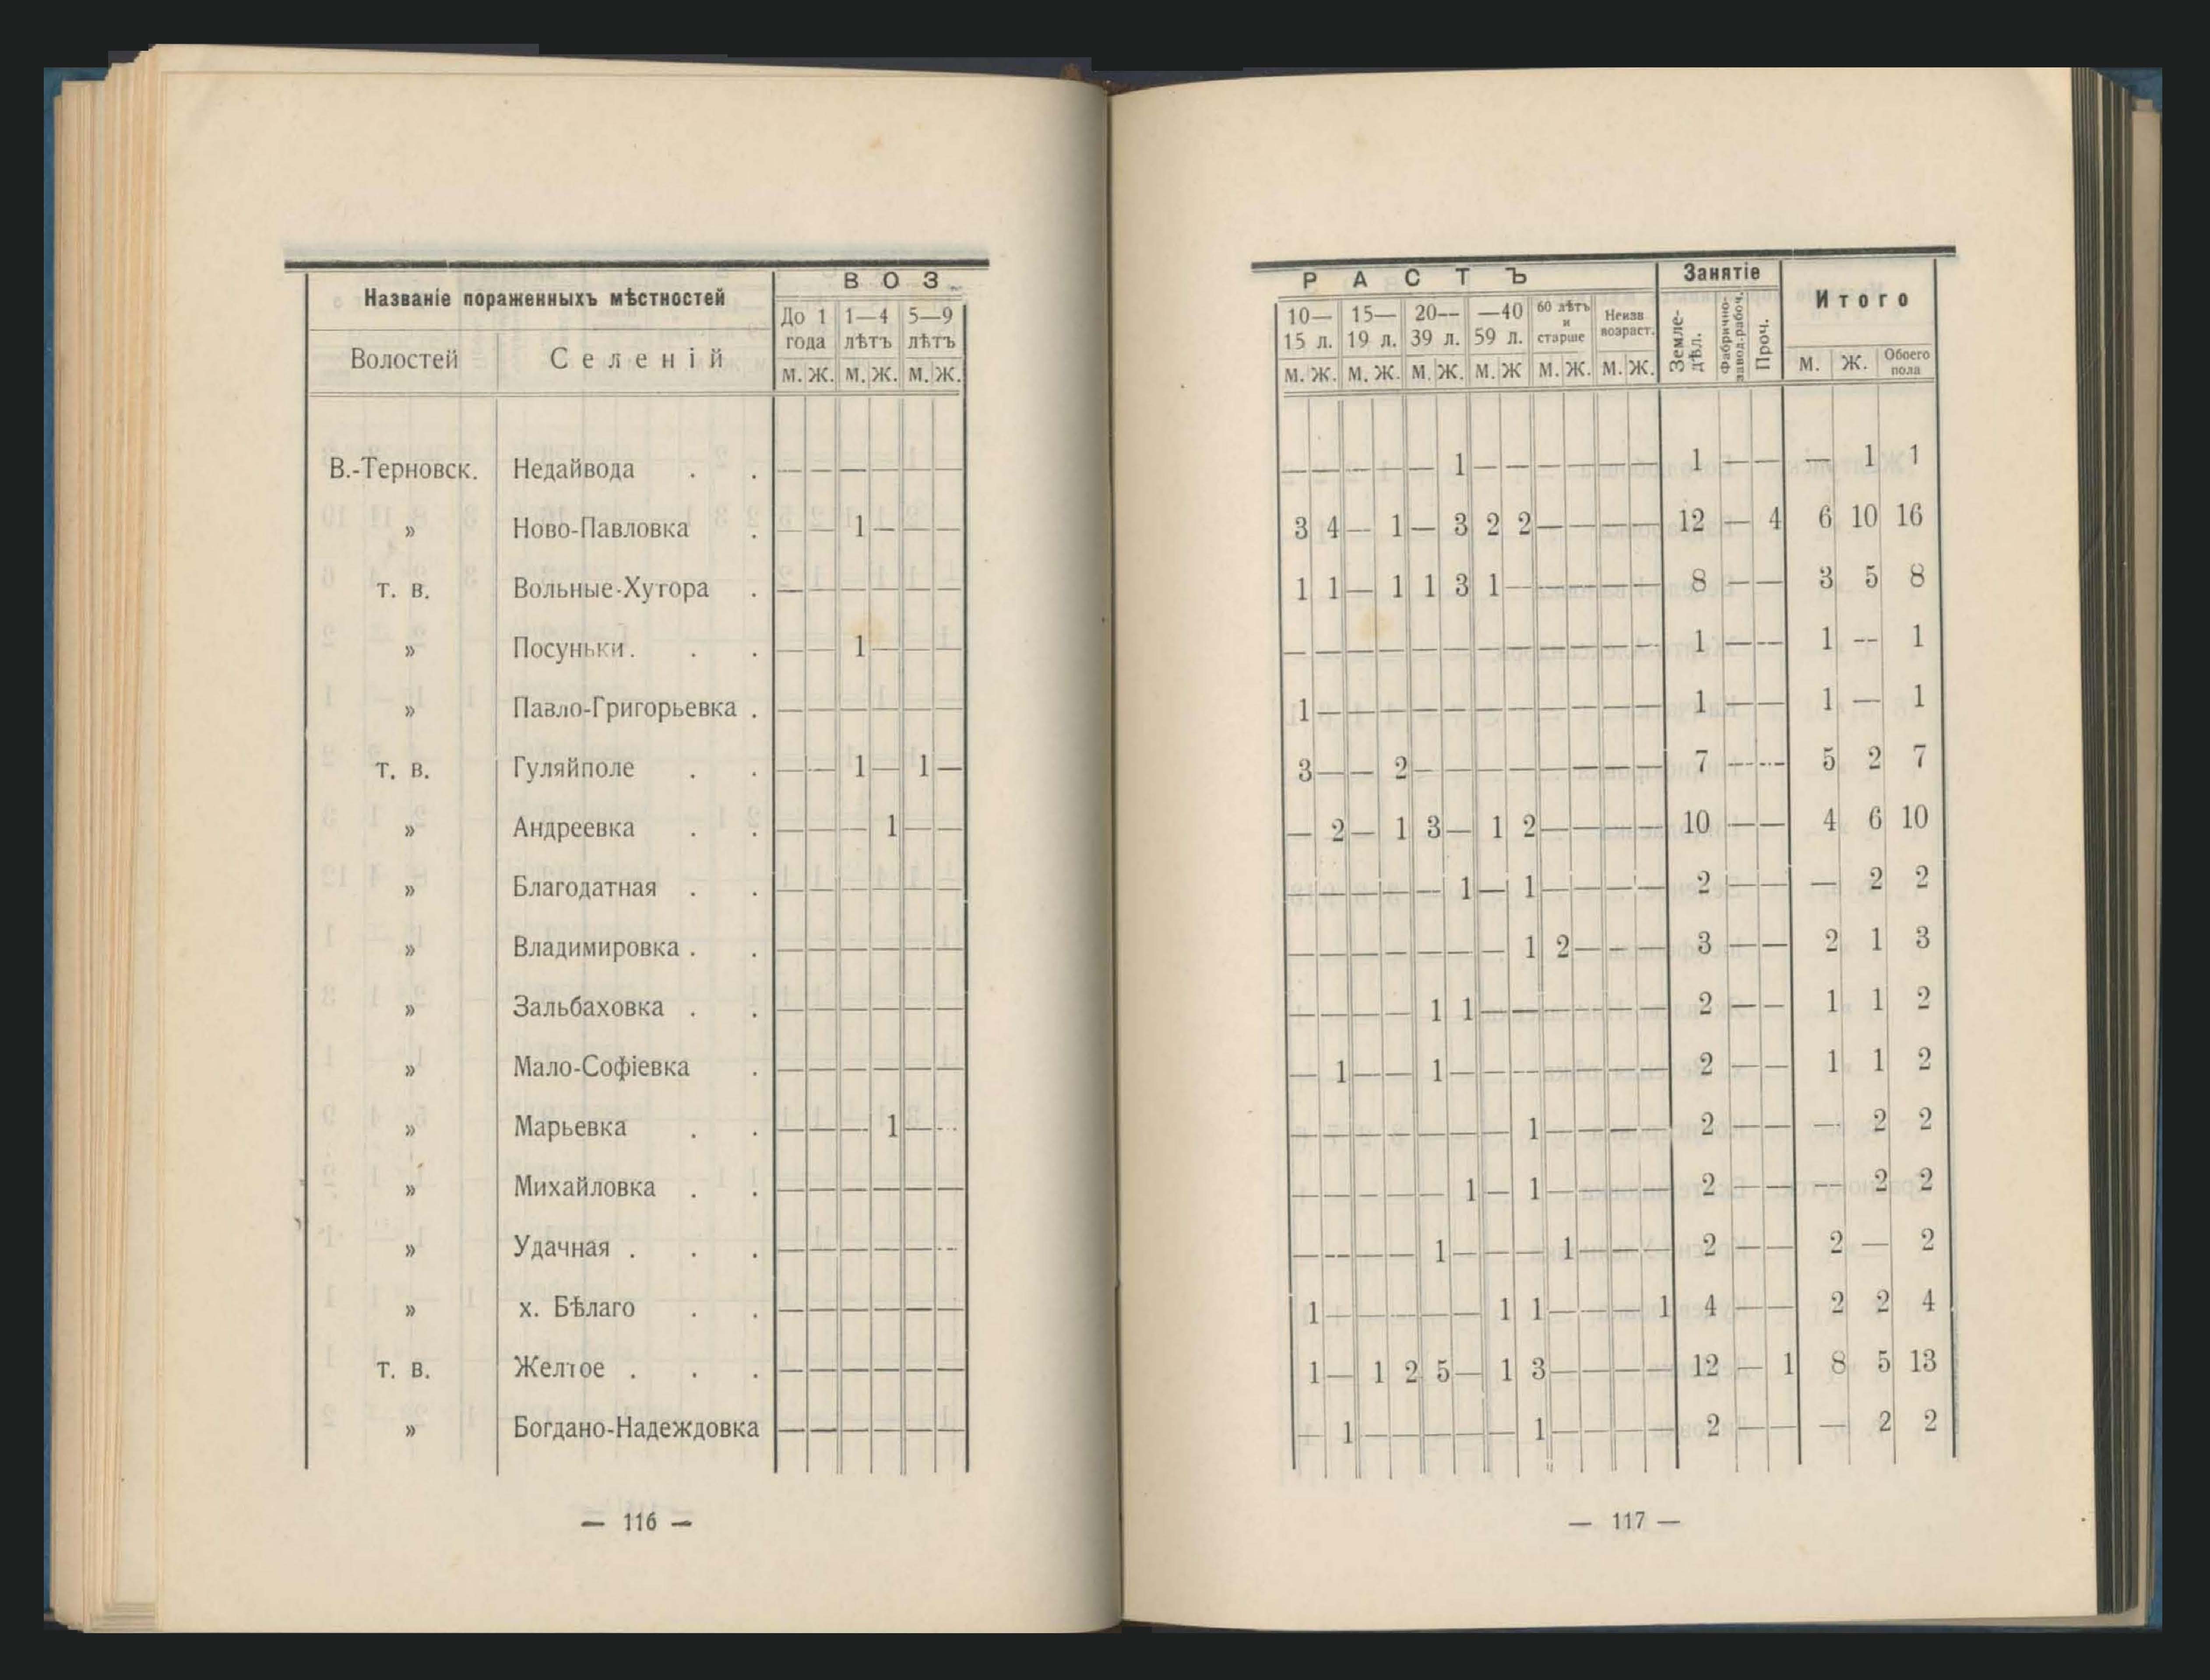 Названіе пораженныхъ мѣстностей
В О З
Волостей
Селеній
До 1 года
1—4 лѣтъ
5—9 лѣтъ
м. Ж. м. Ж. м. Ж.
В.-Терновск. Недайвода . . — — — — — —
» Ново-Павловка . — — 1 — — —
т. в. Вольные-Хутора . — — — — — —
» Посуньки . . . — — 1 — — —
» Павло-Григорьевка . — — — — — —
т. в. Гуляйполе . . — — 1 — 1 —
» Андреевка . . — — — 1 — —
» Благодатная . . — — — — — —
» Владимировка . . — — — — — —
» Зальбаховка . . — — — — — —
» Мало-Софіевка . — — — — — —
» Марьевка . . — — — 1 — —
» Михайловка . . — — — — — —
» Удачная . . . — — — — — —
» х. Бѣлаго . . — — — — — —
т. в. Желтое . . . — — — — — —
» Богдано-Надеждовка — — — — — —
— 116 —
Р А С Т Ъ
Занятіе
Итого
10—15 л.
15—19 л.
20—39 л.
—40 59 л.
60 лѣтъ и старше
Неизв возраст.
Земле-дѣл.
Фабрично-завод.рабоч.
Проч.
м. Ж. м. Ж. м. Ж. м. Ж м. Ж. м. Ж.
м. Ж. Обоего пола
— — — — — 1 — — — — — — 1 — — — 1 1
3 4 — 1 — 3 2 2 — — — — 12 — 4 6 10 16
1 1 — 1 1 3 1 — — — — — 8 — — 3 5 8
— — — — — — — — — — — — 1 — — 1 — 1
1 — — — — — — — — — — — 1 — — 1 — 1
3 — — 2 — — — — — — — — 7 — — 5 2 7
— 2 — 1 3 — 1 2 — — — — 10 — — 4 6 10
— — — — — 1 — 1 — — — — 2 — — — 2 2
— — — — — — — 1 2 — — — 3 — — 2 1 3
— — — — 1 1 — — — — — — 2 — — 1 1 2
— 1 — — 1 — — — — — — — 2 — — 1 1 2
— — — — — — — 1 — — — — 2 — — — 2 2
— — — — — 1 — 1 — — — — 2 — — — 2 2
— — — — 1 — — — 1 — — — 2 — — 2 — 2
1 — — — — — 1 1 — — — 1 4 — — 2 2 4
1 — 1 2 5 — 1 3 — — — — 12 — 1 8 5 13
— 1 — — — — — 1 — — — — 2 — — — 2 2
— 117 —